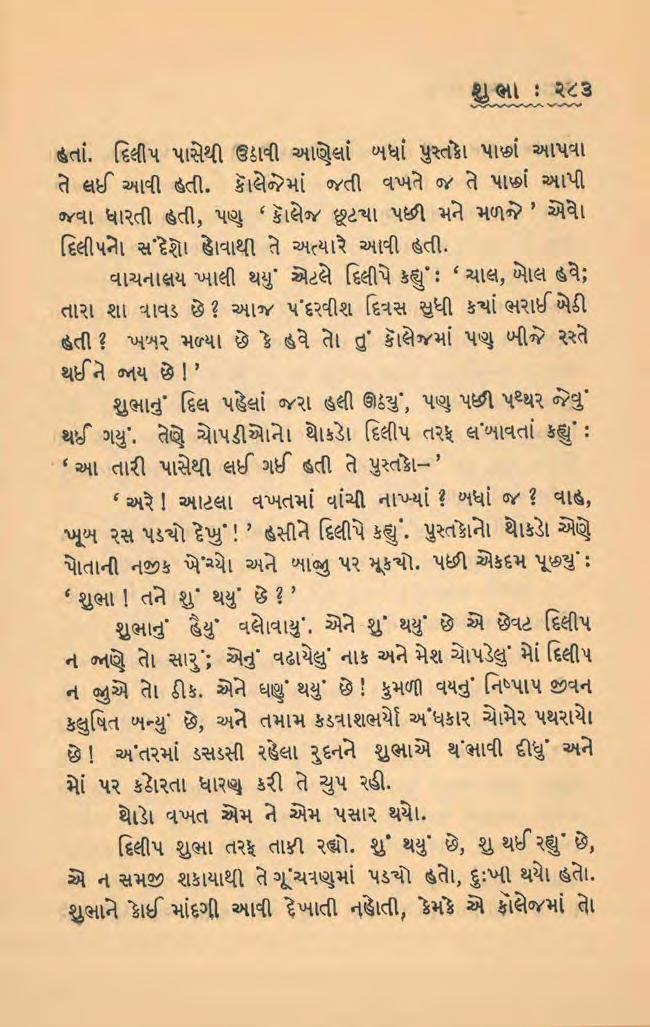 શુભા : ૨૮૩
હતાં. દિલીપ પાસેથી ઉઠાવી આણેલાં બધાં પુસ્તકો પાછાં આપવા
તે લઈ આવી હતી. કૉલેજેમાં જતી વખતે જ તે પાછાં આપી
જવા ધારતી હતી, પણ ‘ કૉલેજ છૂટ્યા પછી મને મળજે ’ એવો
દિલીપનો સંદેશો હોવાથી તે અત્યારે આવી હતી.
વાચનાલય ખાલી થયું એટલે દિલીપે કહ્યું : ‘ ચાલ, બોલ હવે;
તારા શા વાવડ છે ? આજ પંદરવીશ દિવસ સુધી ક્યાં ભરાઈ બેઠી
હતી ? ખબર મળ્યા છે કે હવે તો તું કૉલેજમાં પણ બીજે રસ્તે
થઈને જાય છે ! ’
શુભાનું દિલ પહેલાં જરા હલી ઊઠ્યું, પણ પછી પથ્થર જેવું
થઈ ગયું. તેણે ચોપડીઓનો થોકડો દિલીપ તરફ લંબાવતાં કહ્યું :
‘ આ તારી પાસેથી લઈ ગઈ હતી તે પુસ્તકો– ’
‘ અરે ! આટલા વખતમાં વાંચી નાખ્યાં ? બધાં જ ? વાહ,
ખૂબ રસ પડ્યો દેખું ! ’ હસીને દિલીપે કહ્યું. પુસ્તકોનો થોકડો એણે
પોતાની નજીક ખેંચ્યો અને બાજુ પર મૂક્યો. પછી એકદમ પૂછ્યું :
‘ શુભા ! તને શું થયું છે ? ’
શુભાનું હૈયું વલોવાયું. એને શું થયું છે એ છેવટ દિલીપ
ન જાણે તો સારું; એનું વઢાયેલું નાક અને મેશ ચોપડેલું મોં દિલીપ
ન જુએ તો ઠીક. એને ઘણું થયું છે ! કુમળી વયનું નિષ્પાપ જીવન
કલુષિત બન્યું છે, અને તમામ કડવાશભર્યો અંધકાર ચોમેર પથરાયો
છે ! અંતરમાં ડસડસી રહેલા રુદનને શુભાએ થંભાવી દીધું અને
મોં પર કઠોરતા ધારણ કરી તે ચુપ રહી.
થોડો વખત એમ ને એમ પસાર થયો.
દિલીપ શુભા તરફ તાકી રહ્યો. શું થયું છે, શુ થઈ રહ્યું છે,
એ ન સમજી શકાયાથી તે ગૂંચવણમાં પડ્યો હતો, દુઃખી થયો હતો.
શુભાને કોઈ માંદગી આવી દેખાતી નહોતી, કેમકે એ કૉલેજમાં તો